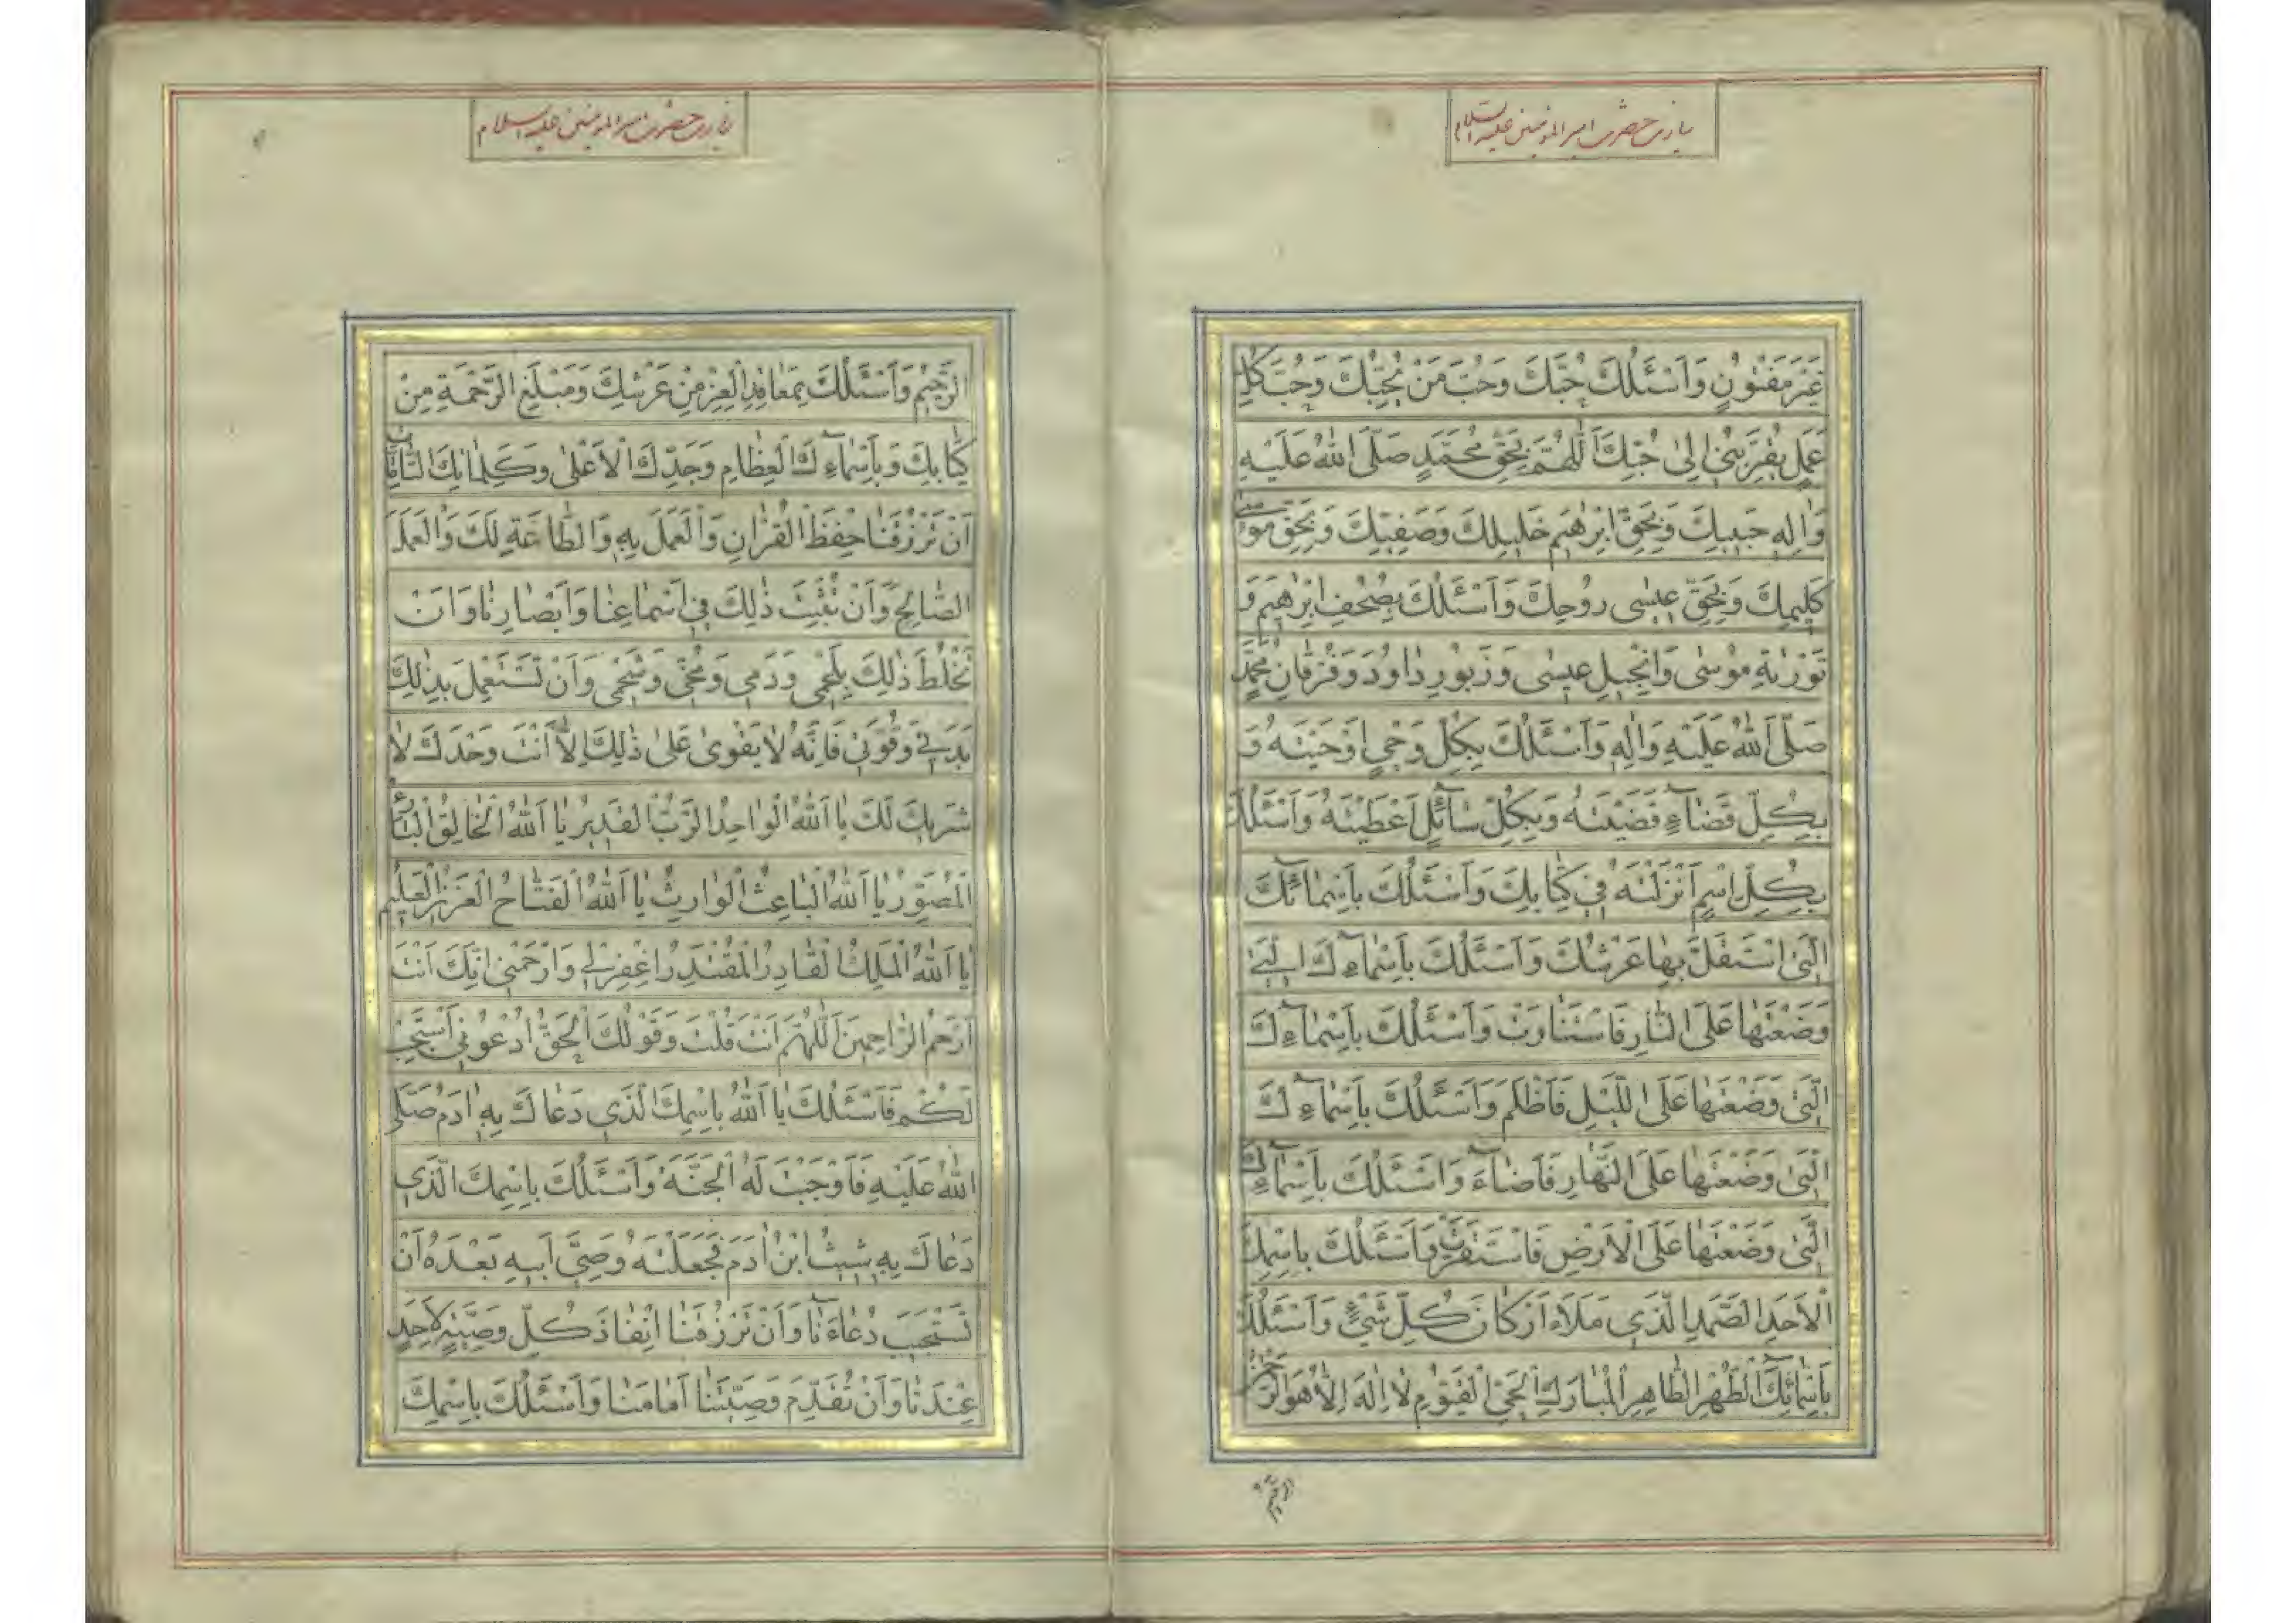 زیارت حضرت امیر المومنین علیه السلام
غَيْرَ مَفْتُونٍ وَاَسْئَلُكَ حُبَّكَ وَحُبَّ مَنْ يُحِبُّكَ وَحُبَّ كُلِّ
عَمَلٍ يُقَرِّبُنِى اِلىٰ حُبِّكَ اَللّٰهُمَّ بِحَقِّ مُحَمَّدٍ صَلَّى اللّٰهُ عَلَيْهِ
وَاٰلِهِ حَبِيبِكَ وَبِحَقِّ اِبْرٰهِيمَ خَلِيلِكَ وَصَفِيِّكَ وَبِحَقِّ مُوسىٰ
كَلِيمِكَ وَبِحَقِّ عِيسٰى رُوحِكَ وَاَسْئَلُكَ بِصُحُفِ اِبْرٰهِيمَ وَ
تَوْرٰيةِ مُوْسٰى وَاِنْجِيلِ عِيسٰى وَزَبُورِ دٰاوُدَ وَفُرْقٰانِ مُحَمَّدٍ
صَلَّى اللّٰهُ عَلَيْهِ وَاٰلِهِ وَاَسْئَلُكَ بِكُلِّ وَحْىٍ اَوْحَيْتَهُ وَ
بِكُلِّ قَضٰاءٍ قَضَيْتَهُ وَبِكُلِّ سٰائِلٍ اَعْطَيْتَهُ وَاَسْئَلُكَ
بِكُلِّ اسْمٍ اَنْزَلْتَهُ فِى كِتٰابِكَ وَاَسْئَلُكَ بِاَسْمٰائِكَ
الَّتِى اسْتَقَلَّ بِهٰا عَرْشُكَ وَاَسْئَلُكَ بِاَسْمٰاءِكَ الَّتِى
وَضَعْتَهٰا عَلَى النّٰارِ فَاسْتَنٰارَتْ وَاَسْئَلُكَ بِاَسْمٰاءِكَ
الَّتِى وَضَعْتَهٰا عَلَى اللَّيْلِ فَاَظْلَمَ وَاَسْئَلُكَ بِاَسْمٰاءِكَ
الَّتِى وَضَعْتَهٰا عَلَى النَّهٰارِ فَاَضٰاءَ وَاَسْئَلُكَ بِاَسْمٰاءِكَ
الَّتِى وَضَعْتَهٰا عَلَى الْاَرْضِ فَاسْتَقَرَّتْ وَاَسْئَلُكَ بِاسْمِكَ
الْاَحَدِ الصَّمَدِ الَّذِى مَلَاَءَ اَرْكٰانَ كُلِّ شَىْءٍ وَاَسْئَلُكَ
بِاَسْمٰائِكَ الطُّهْرِ الطّٰاهِرِ الْمُبٰارَكِ الْحَىِّ الْقَيُّومِ لٰا اِلٰهَ اِلّٰا هُوَ الرَّحْمٰنُ
الرحیم
زیارت حضرت امیر المومنین علیه السلام
الرَّحِيمُ وَاَسْئَلُكَ بِمَعٰاقِدِ الْعِزِّ مِنْ عَرْشِكَ وَمَبْلَغِ الرَّحْمَةِ مِنْ
كِتٰابِكَ وَبِاَسْمٰاءِكَ الْعِظٰامِ وَجَدِّكَ الْاَعْلىٰ وَكَلِمٰاتِكَ التّٰامّٰاتِ
اَنْ تَرْزُقَنٰا حِفْظَ الْقُرْاٰنِ وَالْعَمَلَ بِهِ وَالطّٰاعَةَ لَكَ وَالْعَمَلَ
الصّٰالِحَ وَاَنْ تُثْبِتَ ذٰلِكَ فِى اَسْمٰاعِنٰا وَاَبْصٰارِنٰا وَاَنْ
تَخْلُطَ ذٰلِكَ بِلَحْمِى وَدَمِى وَمُخِّى وَشَحْمِى وَاَنْ تَسْتَعْمِلَ بِذٰلِكَ
بَدَنِى وَقُوَّتِى فَاِنَّهُ لٰا يَقْوىٰ عَلىٰ ذٰلِكَ اِلّٰا اَنْتَ وَحْدَكَ لٰا
شَرِيكَ لَكَ يٰا اَللّٰهُ الْوٰاحِدُ الرَّبُّ الْقَدِيرُ يٰا اَللّٰهُ الْخٰالِقُ الْبٰارِئُ
الْمُصَوِّرُ يٰا اَللّٰهُ الْبٰاعِثُ الْوٰارِثُ يٰا اَللّٰهُ الْفَتّٰاحُ الْعَزِيزُ الْعَلِيمُ
يٰا اَللّٰهُ الْمَلِكُ الْقٰادِرُ الْمُقْتَدِرُ اِغْفِرْلِى وَارْحَمْنِى اِنَّكَ اَنْتَ
اَرْحَمُ الرّٰاحِمِينَ اَللّٰهُمَّ اَنْتَ قُلْتَ وَقَوْلُكَ الْحَقُّ اُدْعُونِى اَسْتَجِبْ
لَكُمْ فَاَسْئَلُكَ يٰا اَللّٰهُ بِاسْمِكَ الَّذِى دَعٰاكَ بِهِ اٰدَمُ صَلَّى
اللّٰهُ عَلَيْهِ فَاَوْجَبْتَ لَهُ الْجَنَّةَ وَاَسْئَلُكَ بِاسْمِكَ الَّذِى
دَعٰاكَ بِهِ شِيثُ ابْنُ اٰدَمَ فَجَعَلْتَهُ وَصِىَّ اَبِيهِ بَعْدَهُ اَنْ
تَسْتَجِيبَ دُعٰاءَنٰا وَاَنْ تَرْزُقَنٰا اِنْفٰاذَ كُلِّ وَصِيَّةٍ لِاَحَدٍ
عِنْدَنٰا وَاَنْ تُقَدِّمَ وَصِيَّتَنٰا اَمٰامَنٰا وَاَسْئَلُكَ بِاسْمِكَ